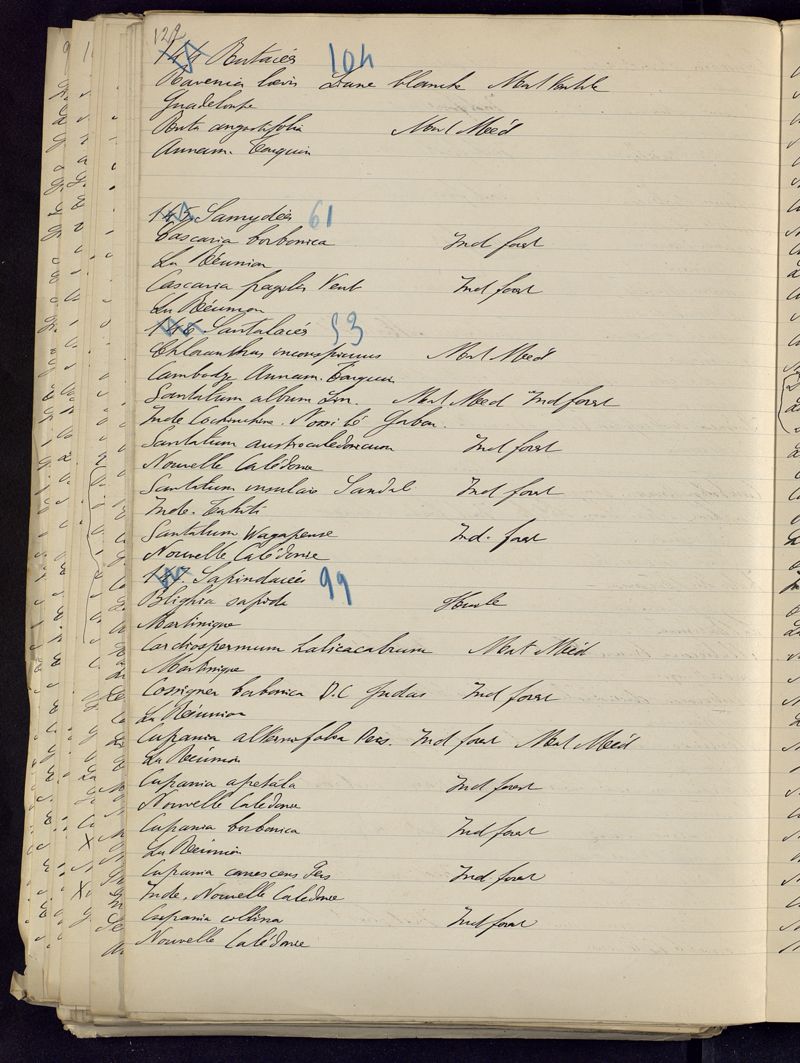 129
144 Rutacées 104
Ravenia lævis Liane blanche Mat Textile
Guadeloupe
Ruta angustifolia Mat Méd
Annam. Tonquin
145. Samydées 61
Cascaria borbonica Ind forest
La Réunion
Cascaria fragilis Vent Ind forest
La Réunion
146. Santalacées 53
Chloranthus inconspicuus Mat Méd
Cambodge Annam. Tonquin
Santalum album Lin. Mat Méd Ind forest
Inde Cochinchine. Nossi bé Gabon.
Santalum austrocaledonicum Ind forest
Nouvelle Calédonie
Santalum insulare Sandal Ind forest
Inde. Tahiti
Santalum Wagapense Ind. forest
Nouvelle Calédonie
147. Sapindacées 99
Blighia sapida
Martinique
Cardiospermum halicacabrum Mat Méd
Martinique
Cossignea borbonica D.C Judas Ind forest
La Réunion
Cupania alternifolia Pers. Ind forest Mat Méd
La Réunion
Cupania apetala Ind forest
Nouvelle Caledonie
Cupania borbonica Ind forest
La Réunion
Cupania canescens Pers Ind. forest
Inde. Nouvelle Caledonie
Cupania collina Ind forest
Nouvelle Calédonie